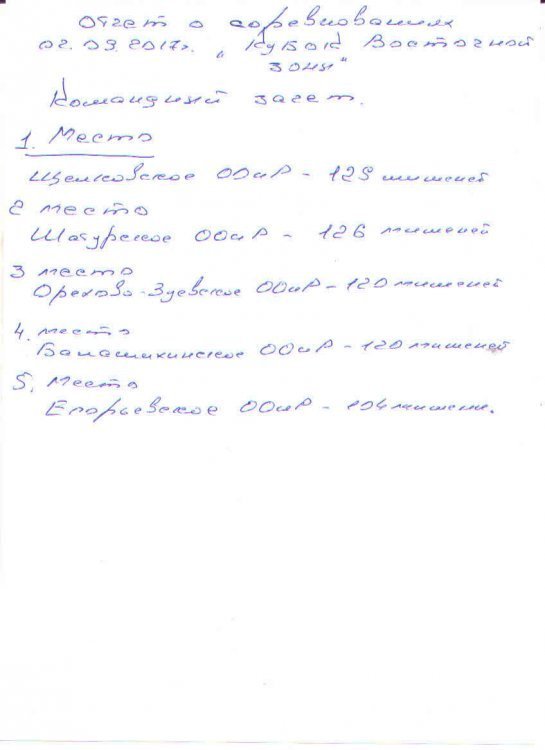 Отчет о соревнованиях
02.09.2017г. "Кубок Восточной
зоны"
Командный зачет.
1. Место
Щелковское ООиР - 129 мишеней
2 место
Шатурское ООиР - 126 мишеней
3 место
Орехово-Зуевское ООиР - 120 мишеней
4. место
Балашихинское ООиР - 120 мишеней
5. Место
Егорьевское ООиР - 104 мишени.